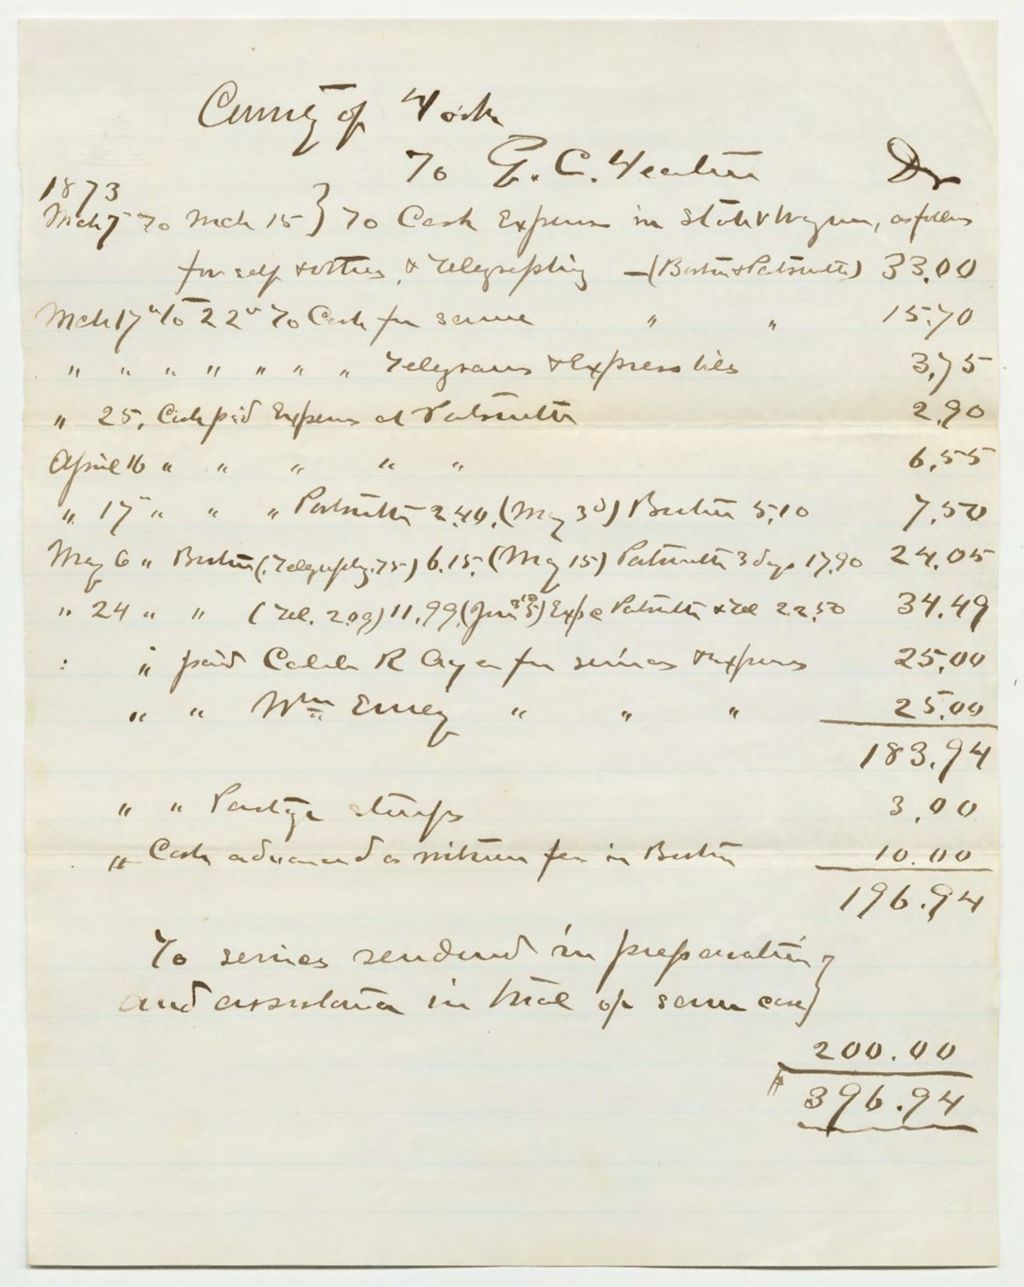 County of York
To G. C. Yeaton Dr
1873
Mch 7 To Mch 15 } To Cash Expenses in State v Wagner, as follows
for self & others, & Telegraphing — (Boston & Portsmouth) 33.00
Mch 17" to 22" To Cash for same " " 15.70
" " " " " " " Telegrams & Express bills 3.75
" 25, Cash paid Expenses at Portsmouth 2.90
April 16 " " " " " 6.55
" 17" " " " Portsmouth 2.40, (May 3d) Boston 5.10 7.50
May 6 " Boston (Telegraphg .75) 6.15, (May 15) Portsmouth 3 days 17.90 24.05
" 24 " " (Tel. 2.09) 11.99, (June) Exp @ Portsmth & Tel 22.50 34.49
" paid Caleb R Ayer for services & expenses 25.00
" " Wm Emery " " " 25.00
183.94
" " Postage stamps 3.00
" Cash advanced as witness fees in Boston 10.00
196.94
To services rendered in preparation }
and assistance in trial of same case }
200.00
$ 396.94